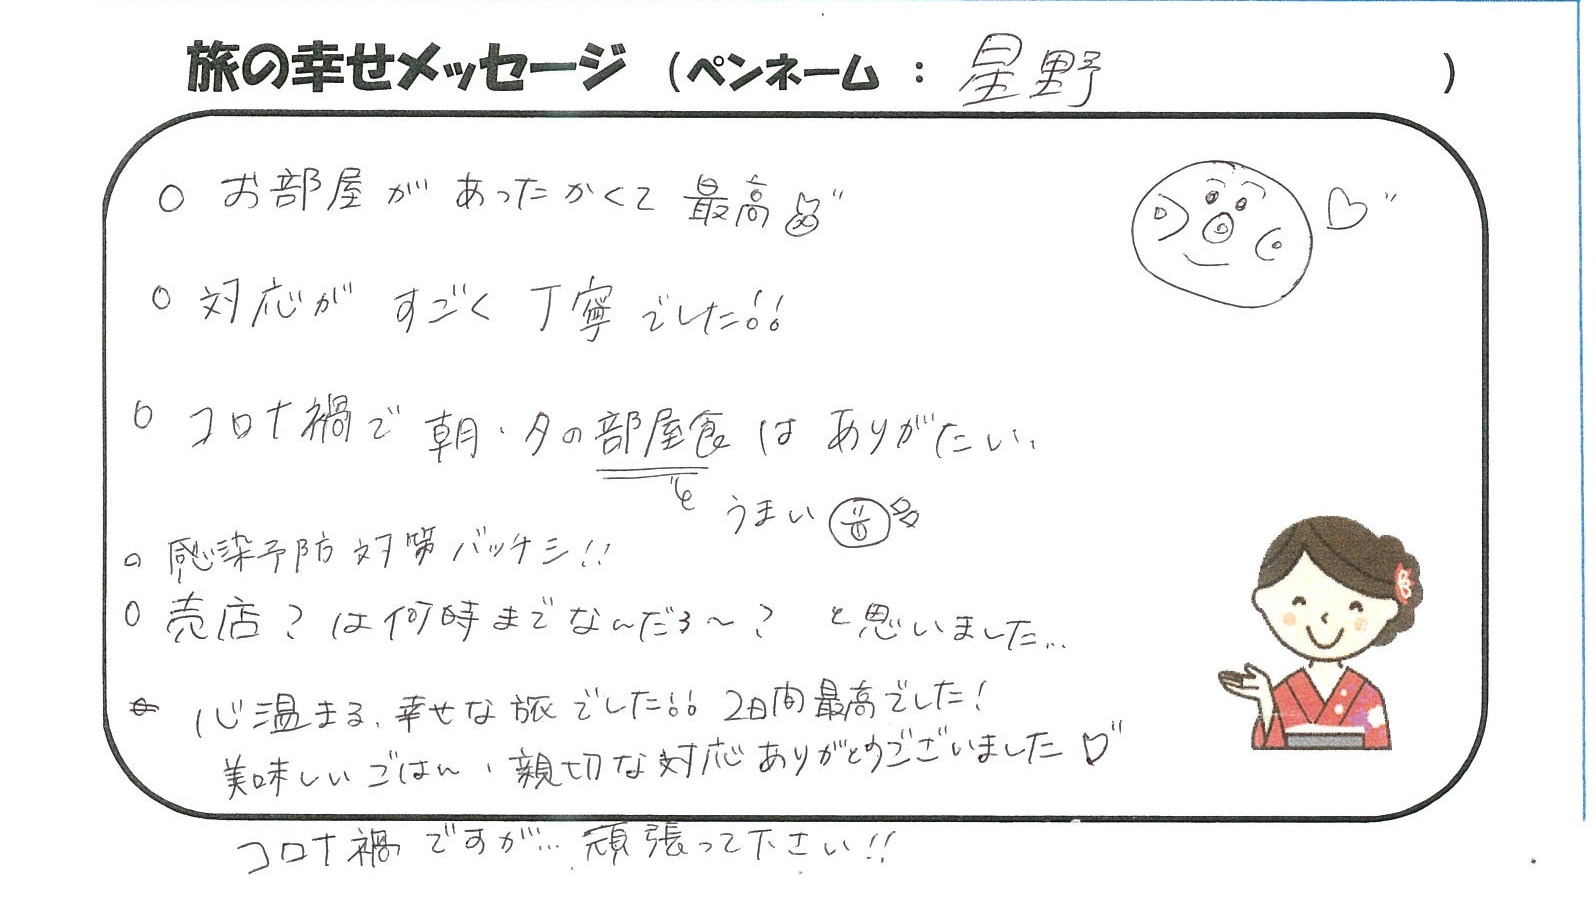 旅の幸せメッセージ (ペンネーム : 星野 )
○ お部屋が あったかくて 最高
○ 対応が すごく 丁寧 でした!!
○ コロナ禍で 朝・夕の部屋食は ありがたい、
うまい
○ 感染予防対策バッチシ!!
○ 売店?は何時までな〜だろ〜? と思いました...
心温まる、幸せな旅でした!! 2日間最高でした!
美味しいごはん、親切な対応ありがとうございました♡
コロナ禍ですが... 頑張って下さい!!